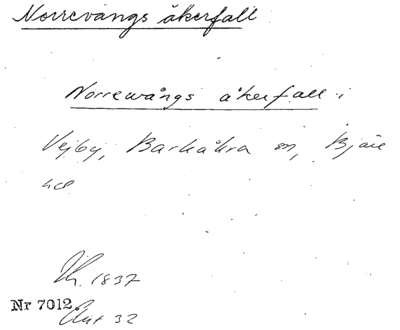 Norrevångs åkerfall
Norrewångs åkerfall i
Vejby, Barkåkra sn, Bjäre
hd
1837
Nr 7012.
Akt 32